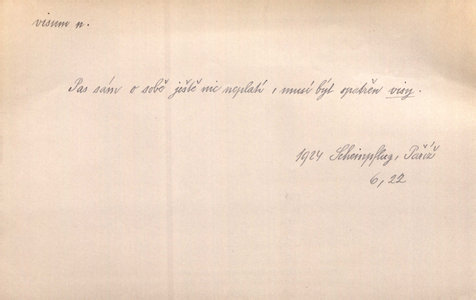 visum n.
Pas sám o sobě ještě nic neplatí, musí být opatřen visy.
1924 Scheinpflug, Paříž
6, 22